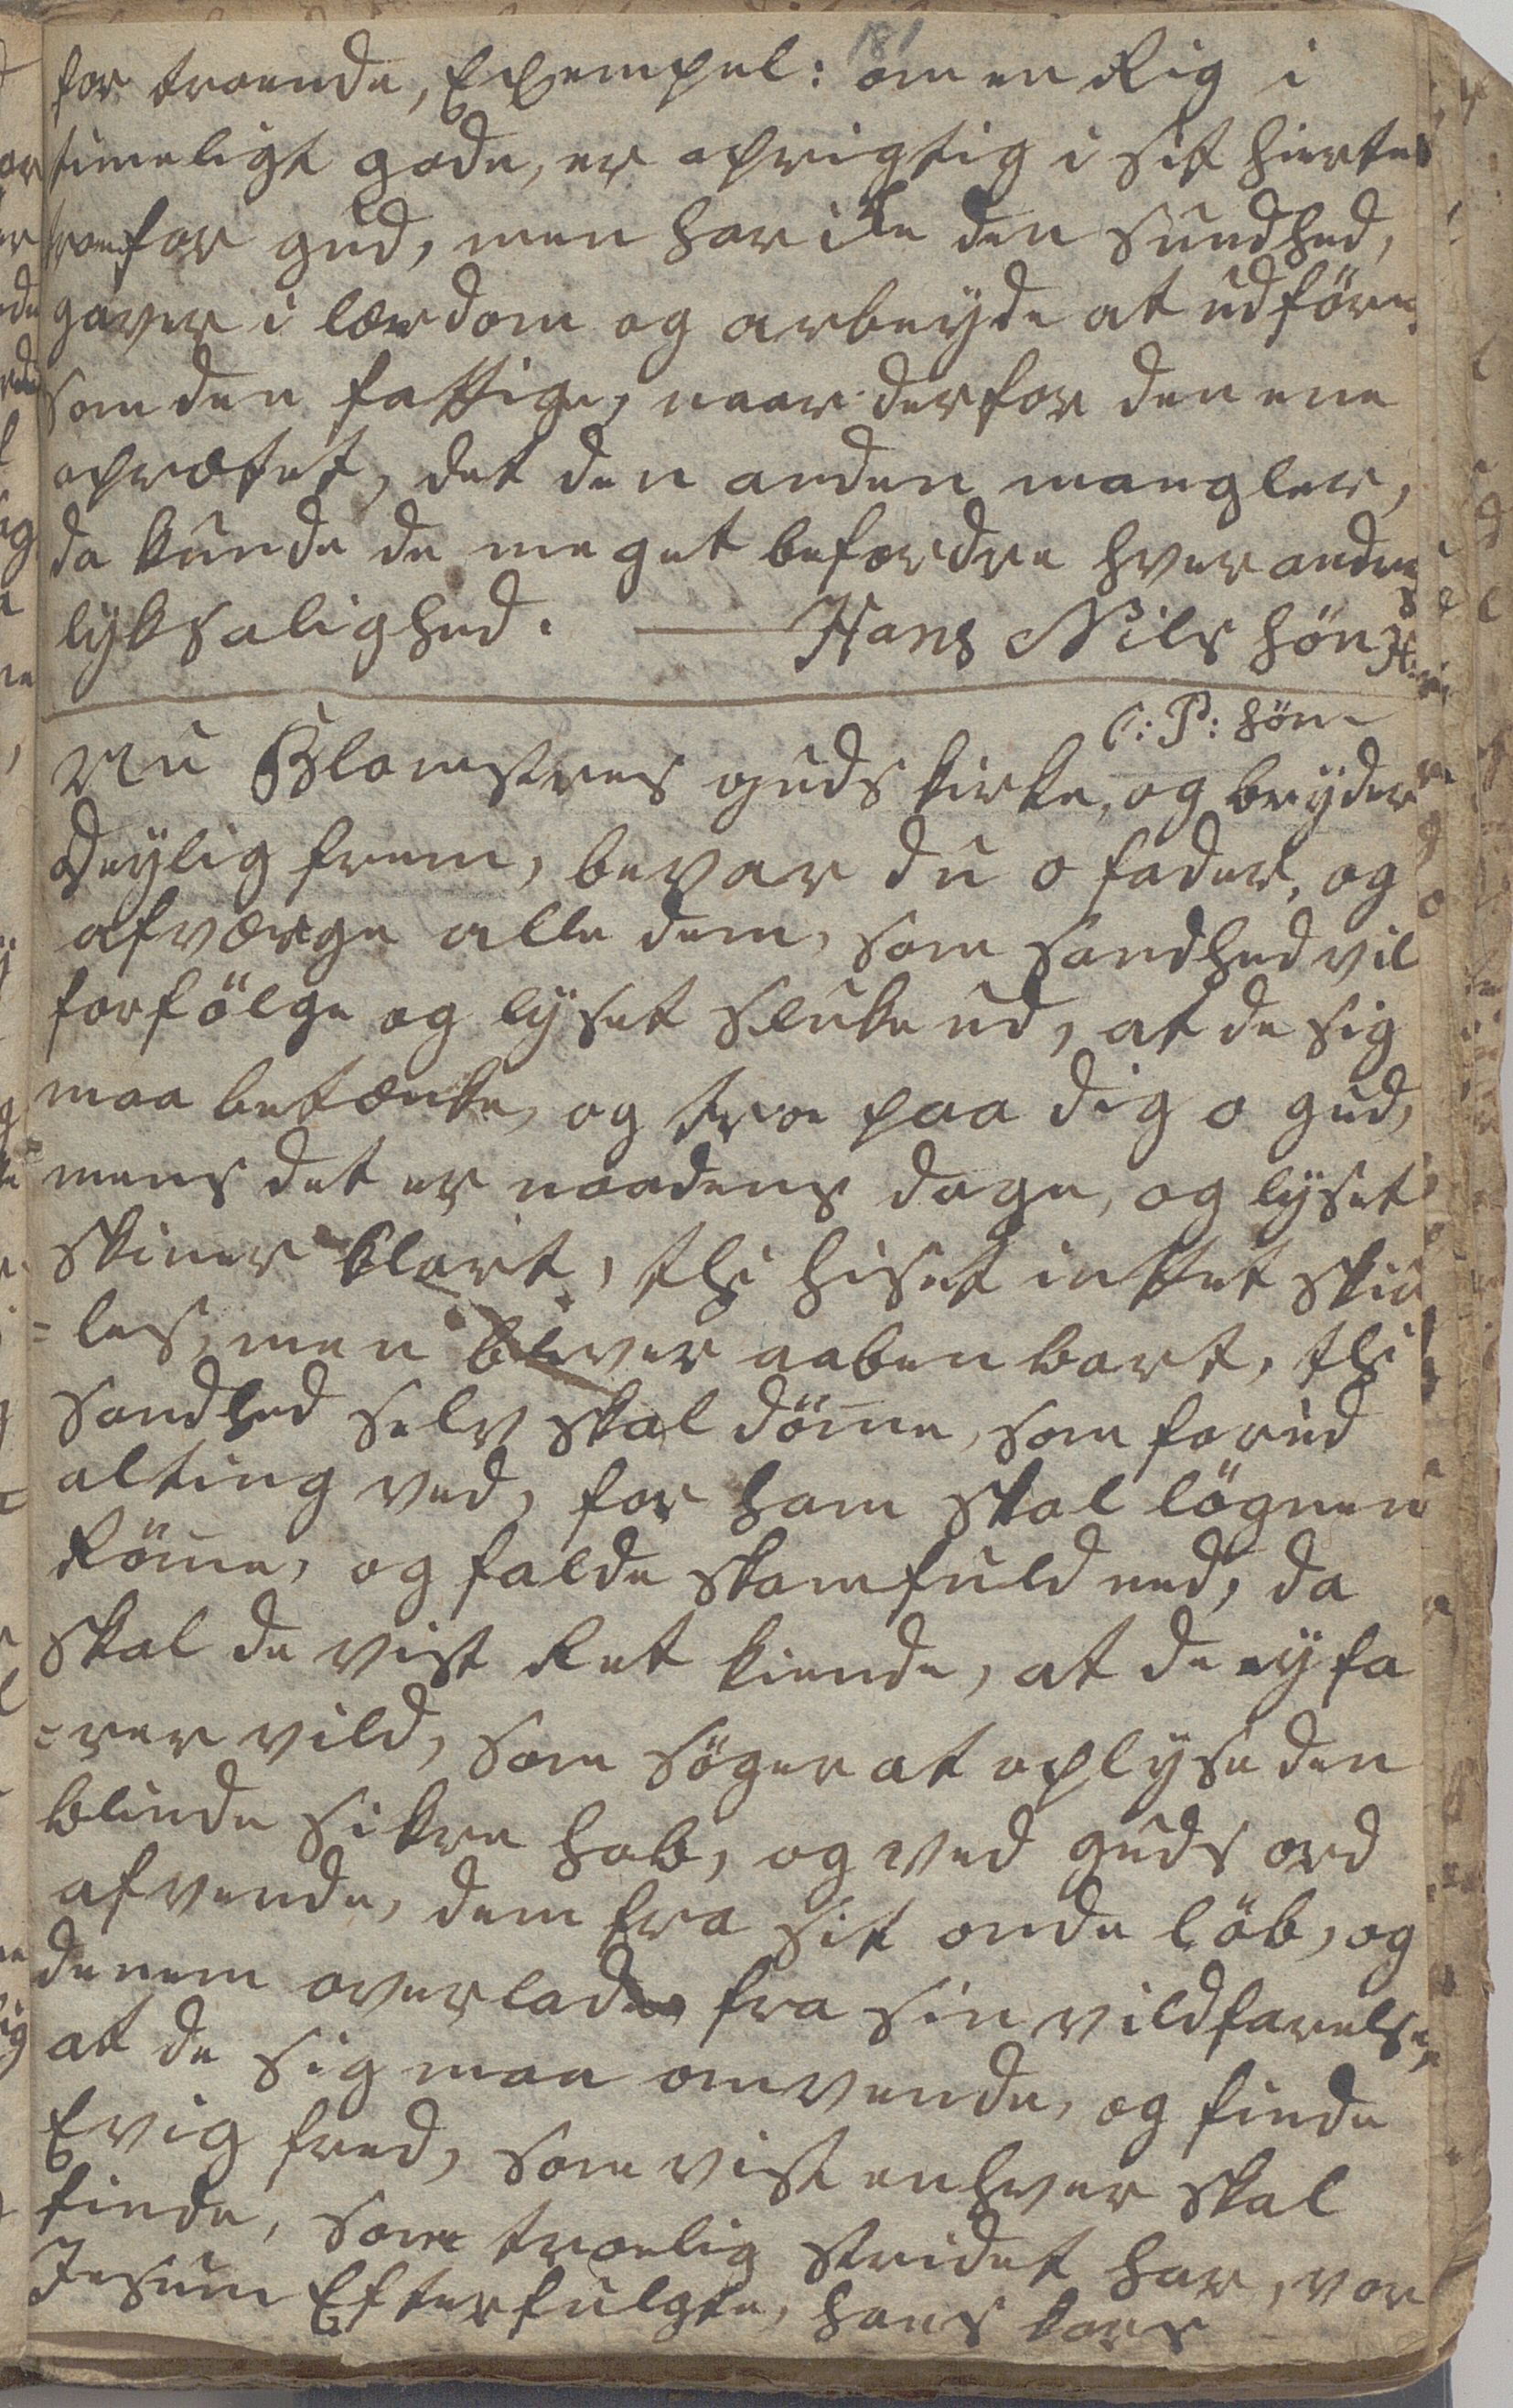 181
for troende, Exsempel: om en Rig i
timeligt gode, er oprigtig i sit hierte
for gud, men har ike den sundhed,
gaver i lærdom og arbeyde at udföre,
som den fattige, naar derfor den ene
opræter, det den anden mangler,
da kunde de meget befordre hverandres
lyksalighed. — Hans Nils hön
C: P: hön
Nu Blomstres guds kirke, og bryder
deylig frem, bevar du o fader, og
afværge alle dem, som sandhed vil
forfölge og lyset sluke ud, at de sig
maa betænke, og troe paa dig o gud,
mens det er naadens dage, og lyset
skiner klart, thi hiset intet skiu
=les, men bliver aabenbart, thi
sandhed selv skal döme, som forud
alting ved, for ham skal lögnen
Röme, og falde skamfuld ned, da
skal de vist Ret kiende, at de ey fa
=rer vild, som söger at oplyse den
blinde sikre hob, og ved guds ord
afvende, dem fra sit onde löb, og
denem overlade fra sin vildfarelse,
at de sig maa omvende, og finde
Evig fred, som vist enhver skal
finde, som troelig stridet har, vor
Jesum Efterfulgte, hans kors